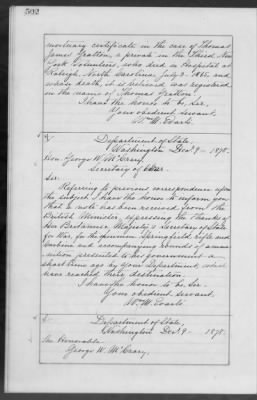 502
mortuary certificate in the case of Thomas
James Gratton, a private in the Third New
York Volunteers, who died in Hospital at
Raleigh, North Carolina July 3. 1865. and
whose death, it is believed was registered
in the name of Thomas Gratton.
I have the honor to be, Sir,
Your obedient servant,
Wm. M. Evarts.
Department of State,
Washington Decr. 9 — 1878.
Hon. George W. McCrary,
Secretary of War.
Sir:
Referring to previous correspondence upon
the subject I have the honor to inform you
that a note has been received from the
British Minister, expressing the thanks of
Her Britannic Majesty's Secretary of State
for War, for the specimen Springfield rifle and
Carbine and accompanying rounds of ammu-
nition presented to his government a
short time ago by your Department, which
have reached their destination.
I have the honor to be, Sir,
Your obedient servant,
Wm. M. Evarts.
Department of State,
Washington Decr. 9 — 1878.
The Honorable
George W. McCrary,